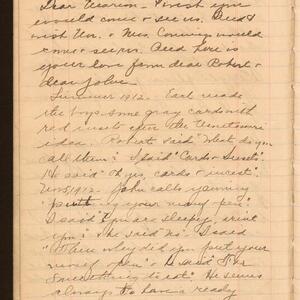 Dear Marion - I wish you
would come & see us. And I
wish Mr. & Mrs. Conway would
come & see us. And here is
your love from dear Robert &
dear John.
Summer 1912. Earl made
the boys some gray cards with
red insets after the Montessori
idea. Robert said "What do you
call them?" I said "Cards & Insets".
He said "Oh yes, cards & insect".
Nov. 1912. John calls yawning
"putting your
I said "You are sleepy,
you?" He said "No". I said
"Then why did you put your
open"? He said "For
something to eat". He seems
always to have a ready